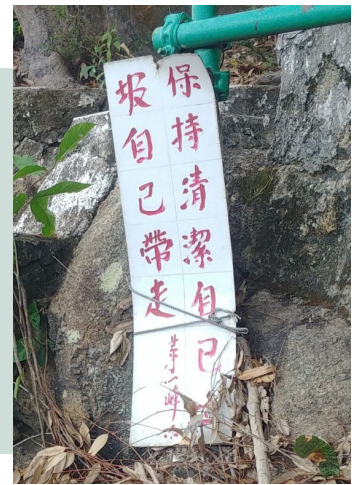 保持清潔自己
圾自己帶走